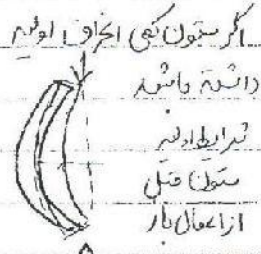 اگر ستون کمی انحراف اولیه
داشته باشد
شرایط اولیه
ستون قبل
از اعمال بار